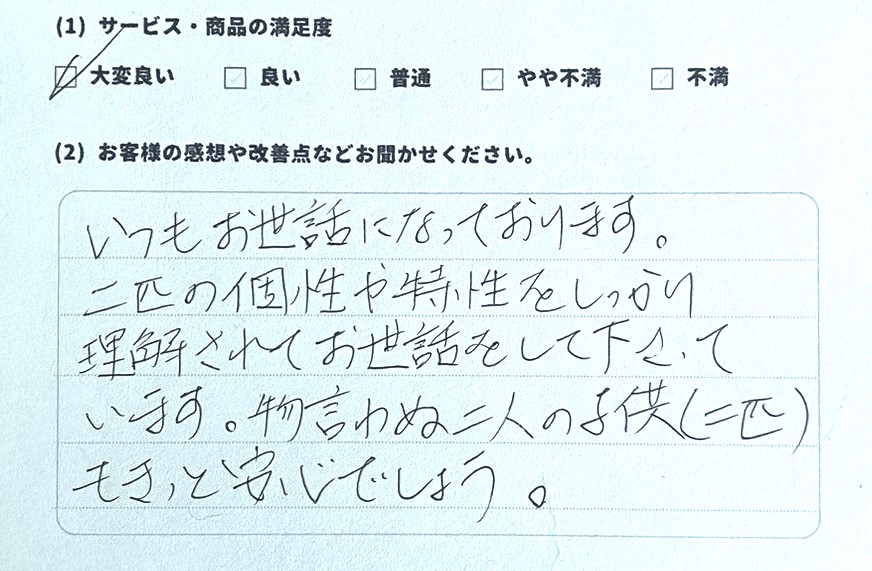 (1) サービス・商品の満足度
☑ 大変良い □ 良い □ 普通 □ やや不満 □ 不満
(2) お客様の感想や改善点などお聞かせください。
いつもお世話になっております。
二匹の個性や特性をしっかり
理解されてお世話をして下さって
います。物言わぬ二人の子供(二匹)
もきっと安心でしょう。